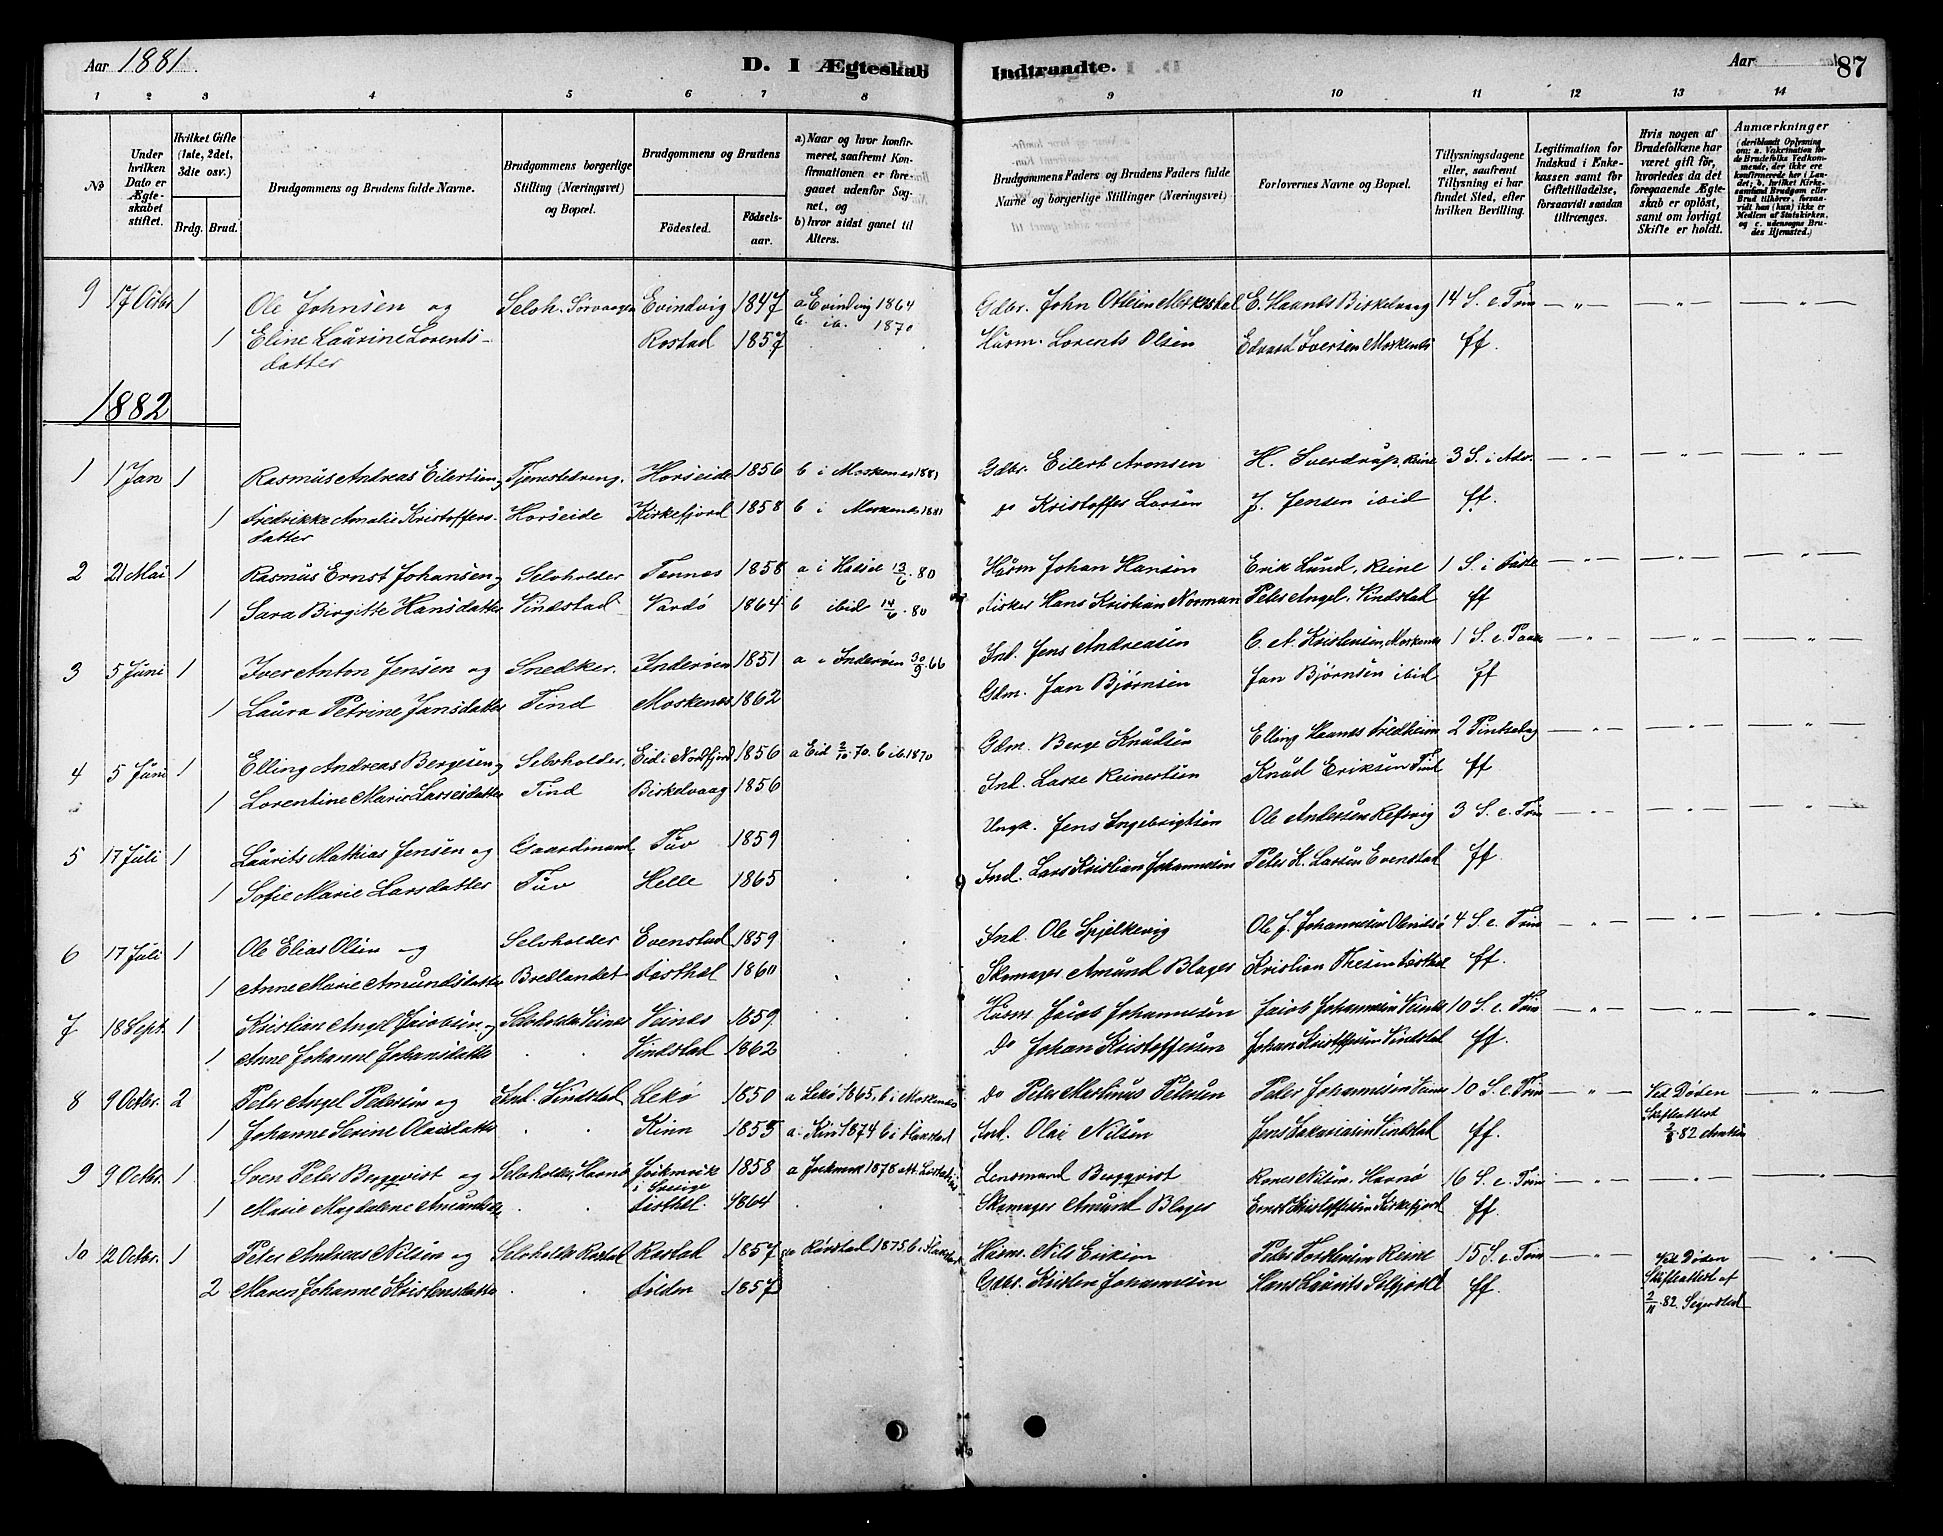 Aar 1881.
D. I Ægteskab Indtraadte.
Aar 87
1 2 3 4 5 6 7 8 9 10 11 12 13 14
№
Under hvilken Dato er Ægteskabet stiftet.
Hvilket Gifte (1ste, 2det, 3die osv.)
Brdg. Brud.
Brudgommens og Brudens fulde Navne.
Brudgommens borgerlige Stilling (Næringsvei) og Bopæl.
Brudgommens og Brudens
Födested.
Födselsaar.
a) Naar og hvor konfirmeret, saafremt Konfirmationen er foregaaet udenfor Sognet, og
b) hvor sidst gaaet til Alters.
Brudgommens Faders og Brudens Faders fulde Navne og borgerlige Stillinger (Næringsvei)
Forlovernes Navne og Bopæl.
Tillysningsdagene eller, saafremt Tillysning ei har fundet Sted, efter hvilken Bevilling.
Legitimation for Indskud i Enkekassen samt for Giftetilladelse, forsaavidt saadan tiltrænges.
Hvis nogen af Brudefolkene har været gift för, hvorledes da det foregaaende Ægteskab er oplöst, samt om lovligt Skifte er holdt.
Anmærkninger (deriblandt Oplysning om: a. Vakcination for de Brudefolks Vedkommende, der ikke ere konfirmerede her i Landet; b. hvilket Kirkesamfund Brudgom eller Brud tilhører, forsaavidt han (hun) ikke er Medlem af Statskirken, og c. udensogns Brudes Hjemsted.)
9 17 Octbr 1 Ole Johnsen og Selvh. Sörvaagen Evindvig 1847 a Evindvig 1864 Gdbr. John Ottesen E. Haanes Birkelvaag 14 S. e. Trin — „ — — „ — — „ —
b. ib. 1870
1 Eline Laurine Lorents- Rostad 1857 Husm. Lorents Olsen Edvard Iversen Moskenes ff.
datter
1882
1 1 Jan 1 Rasmus Andreas Eilertsen og Tjenestedreng, Horseide 1856 b i Moskenes 1881 Gdbr. Eilert Aronsen H. Sverdrup, Reine 3 S. i Adv.
1 Fredrikke Amalie Kristoffers- Horseide Kirkefjord 1858 b i Moskenes 1881 do Kristoffer Larsen J. Jensen ibid ff.
datter
2 21 Mai 1 Rasmus Ernst Johansen og Selvholder Tennes 1858 a i 13/6 80 Husm Johan Hansen Erik Lund, Reine 1 S. i Faste
1 Sara Birgitte Hansdatter Vindstad Vardö 1864 b ibid 14/6 80 Fisker Hans Kristian Norman Peter Angel, Vindstad ff
3 5 Juni 1 Iver Anton Jensen og Snedker. Inderöen 1851 a i Inderöen 30/9 66 Ind. Jens Andreasen C. A. Kristensen, Moskenes 1 S. e. Paaske
1 Laura Petrine Jansdatter Tind Moskenes 1862 Gdm. Jan Bjørnsen Jan Bjørnsen ibid ff
4 5 Juni 1 Elling Andreas Bergesen og Selvholder, Eid i Nordfjord 1856 a Eid 2/10 70. b ib. 1870 Gdm. Berge Knudsen Elling Haanes Fredheim 2 Pintsedag
1 Lorentine Marie Lassesdatter Tind Birkelvaag 1856 Ind. Lasse Reinertsen Knud Eriksen Tind ff
5 17 Juli 1 Laurits Mathias Jensen og Gaardmand Tuv 1859 Ungk. Jens Ingebrigtsen Ole Andersen Refsvig 3 S. e. Trin
1 Sofie Marie Larsdatter Tuv Helle 1865 Ind. Lars Kristian Johannesen Peter K. Larsen Evenstad ff.
6 17 Juli 1 Ole Elias Olsen og Selvholder Evenstad 1859 Ind. Ole Spjelkevig Ole J. Johannesen 4 S. e. Trin
1 Anne Marie Amundsdatter Bredlandet 1860 Skomager Amund Blages Kristian ff.
7 18 Sept. 1 Kristian Angel Jacobsen og Selvholder Veines Veines 1859 Husm. Jacob Johannesen Jacob Johannesen Veines 10 S. e. Trin
1 Anne Johanne Johansdatter Vindstad 1862 Do Johan Kristoffersen Johan Kristoffersen Vindstad ff.
8 9 Octbr. 2 Peter Angel Petersen og Ind. Vindstad Lekö 1850 a Lekö 1865, b i Moskenes Do Peter Martinus Petersen Peter Johannesen 10 S. e. Trin — „ — Ved Døden
Skifteattest
2/8 82
1 Johanne Serine Olaisdatter Kinn 1853 a. Kin 1874 b i Flakstad Ind. Olai Nilsen Jens Zakariasen Vindstad ff.
9 9 Octbr. 1 Sven Peter Bergqvist og Selvholder, Havnö Jockmock 1858 a Jockmock 1878 Lensmand Bergqvist Nilsen, Havnö 16 S. e. Trin
i Sverige
1 Marie Magdalene Amundsdtr 1864 Skomager Amund Blages Ernst Kristoffersen Kirkefjord ff.
10 12 Octbr. 1 Peter Andreas Nilsen og Selvholder Rostad Rostad 1857 1875 b. Flakstad Husm. Nils Eriksen Peder Reine 15 S. e. Trin Ved Døden
Skifteattest af
2/11 82.
2 Maren Johanne Kristensdatter Folden 1857 Gdbr. Kristen Johannesen Hans Laurits Selfjord ff.